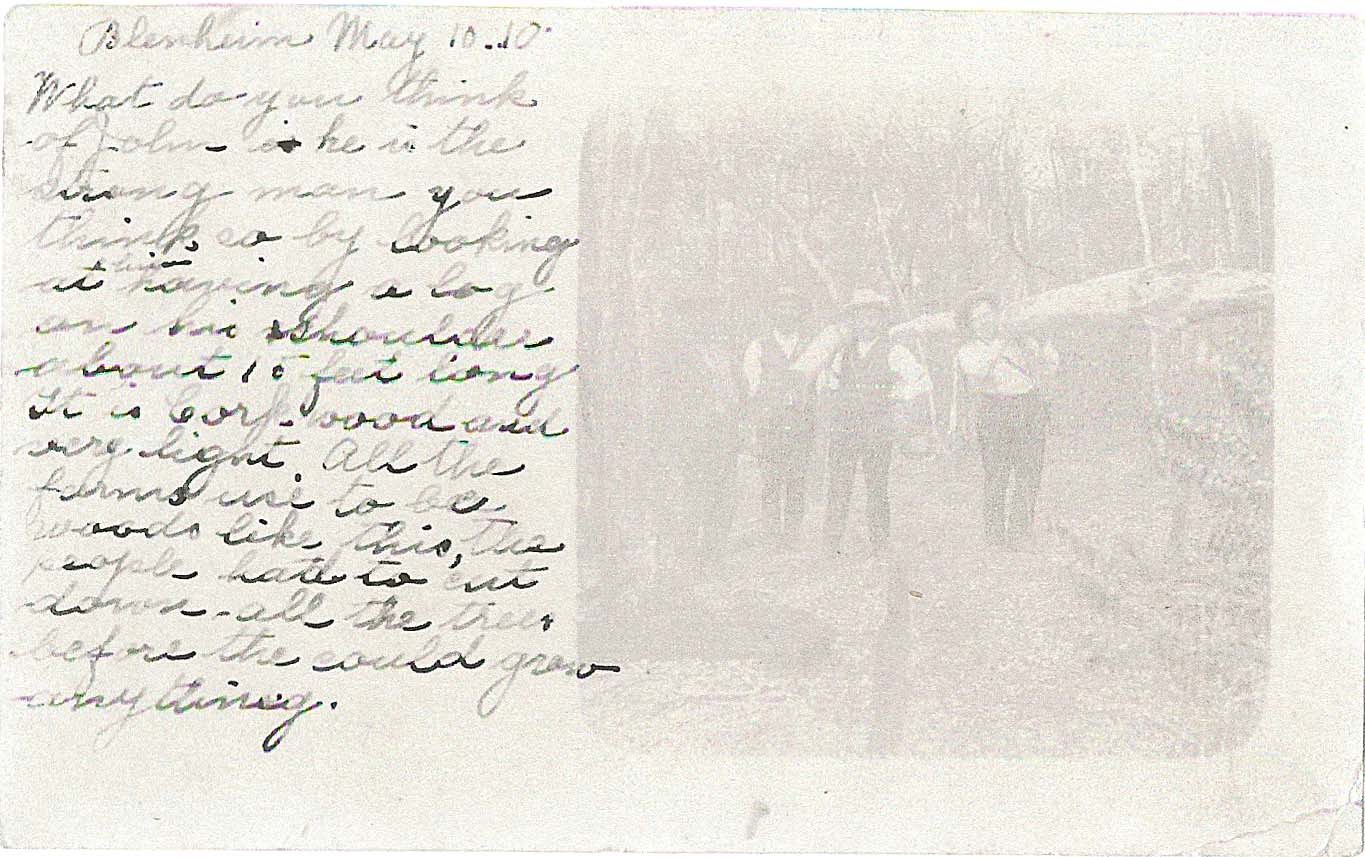 Blenheim May 10..10.
What do you think
of John is he is the
strong man you
think so by looking
at him having a log
on his shoulder
about 15 feet long
It is Cork wood and
very light. All the
farms use to be
woods like this, the
people hat to cut
down all the trees
before the could grow
anything.